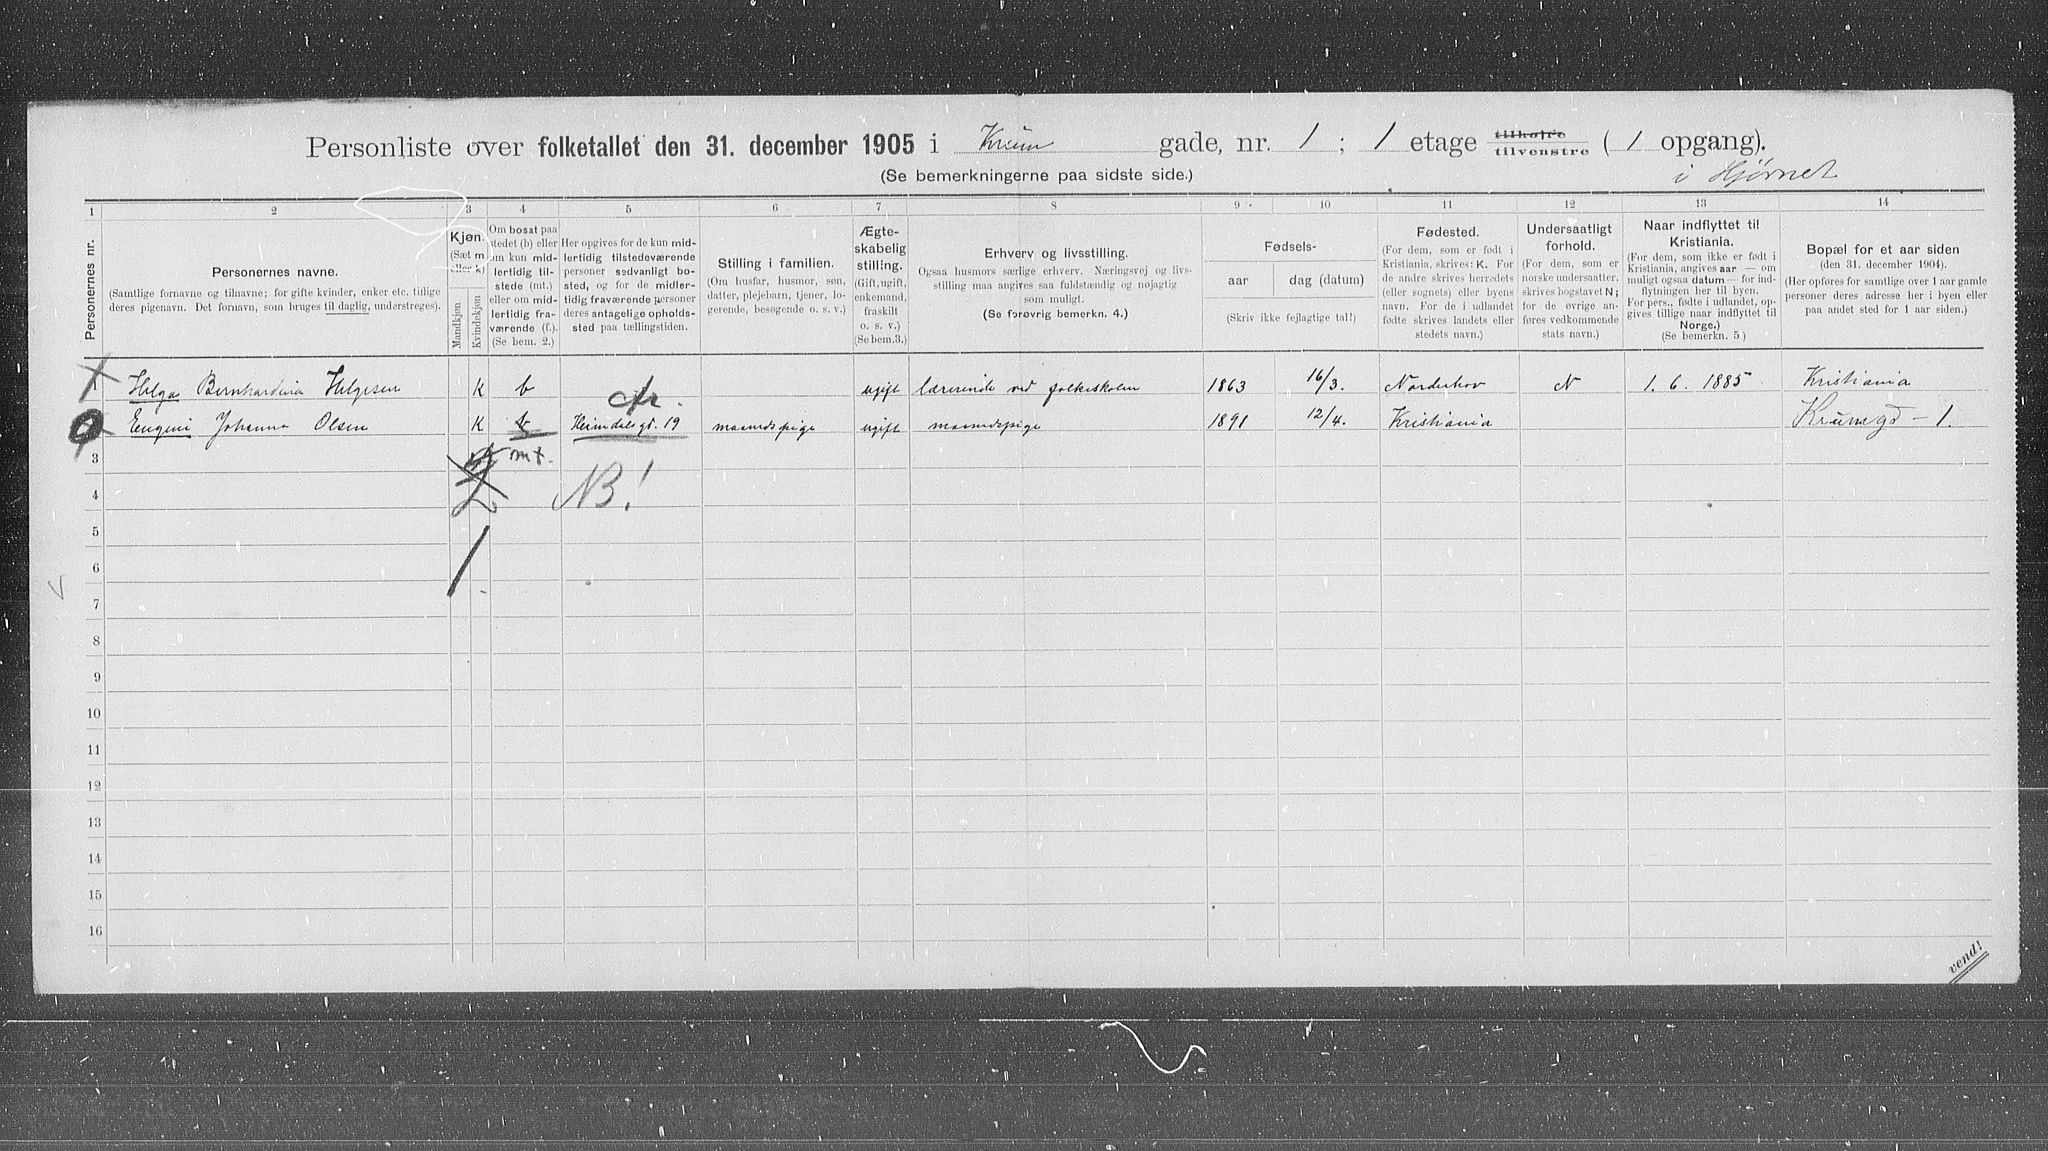 Personliste over folketallet den 31. december 1905 i Krum gade, nr. 1 ; 1 etage tilhøire tilvenstre ( 1 opgang).
(Se bemerkningerne paa sidste side.) i Hjørnet
1 2 3 4 5 6 7 8 9 10 11 12 13 14
Personernes nr.
Personernes navne.
(Samtlige fornavne og tilnavne; for gifte kvinder, enker etc. tillige
deres pigenavn. Det fornavn, som bruges til daglig, understreges).
Kjøn.
(Sæt m
eller k)
Mandkjøn
Kvindekjøn
Om bosat paa
stedet (b) eller
om kun mid-
lertidig til-
stede (mt.)
eller om mid-
lertidig fra-
værende (f.).
(Se bem. 2.)
Her opgives for de kun mid-
lertidig tilstedeværende
personer sædvanligt bo-
sted, og for de midler-
tidig fraværende personer
deres antagelige opholds-
sted paa tællingstiden.
Stilling i familien.
(Om husfar, husmor, søn,
datter, plejebarn, tjener, lo-
gerende, besøgende o. s. v.)
Ægte-
skabelig
stilling.
(Gift, ugift,
enkemand,
fraskilt
o. s. v.)
(Se bem.3.)
Erhverv og livsstilling.
Ogsaa husmors særlige erhverv. Næringsvej og livs-
stilling maa angives saa fuldstændig og nøjagtig
som muligt.
(Se forøvrig bemerkn. 4.)
Fødsels-
aar
dag (datum)
(Skriv ikke fejlagtige tal!)
Fødested.
(For dem, som er født i
Kristiania, skrives: K. For
de andre skrives herredets
(eller sognets) eller byens
navn. For de i udlandet
fødte skrives landets eller
stedets navn.)
Undersaatligt
forhold.
(For dem, som er
norske undersaatter,
skrives bogstavet N;
for de øvrige an-
føres vedkommende
stats navn.)
Naar indflyttet til
Kristiania.
(For dem, som ikke er født i
Kristiania, angives aar — om
muligt ogsaa datum — for ind-
flytningen her til byen.
For pers., fødte i udlandet, op-
gives tillige naar indflyttet til
Norge.)
(Se bemerkn. 5.)
Bopæl for et aar siden
(den 31. december 1904).
(Her opføres for samtlige over 1 aar gamle
personer deres adresse her i byen eller
paa andet sted for 1 aar siden.)
Helga Bernhardina Helgesen K b ugift lærerinde ved folkeskolen 1863 16/3. Norderhov N 1. 6. 1885 Kristiania
Eugeni Johanna Olsen K b Heimdalsgt. 19 maanedspige ugift maanedspige 1891 12/4. Kristiania Krumgd - 1.
3 mt.
4 NB!
5
6
7
8
9
10
11
12
13
14
15
16
vend!